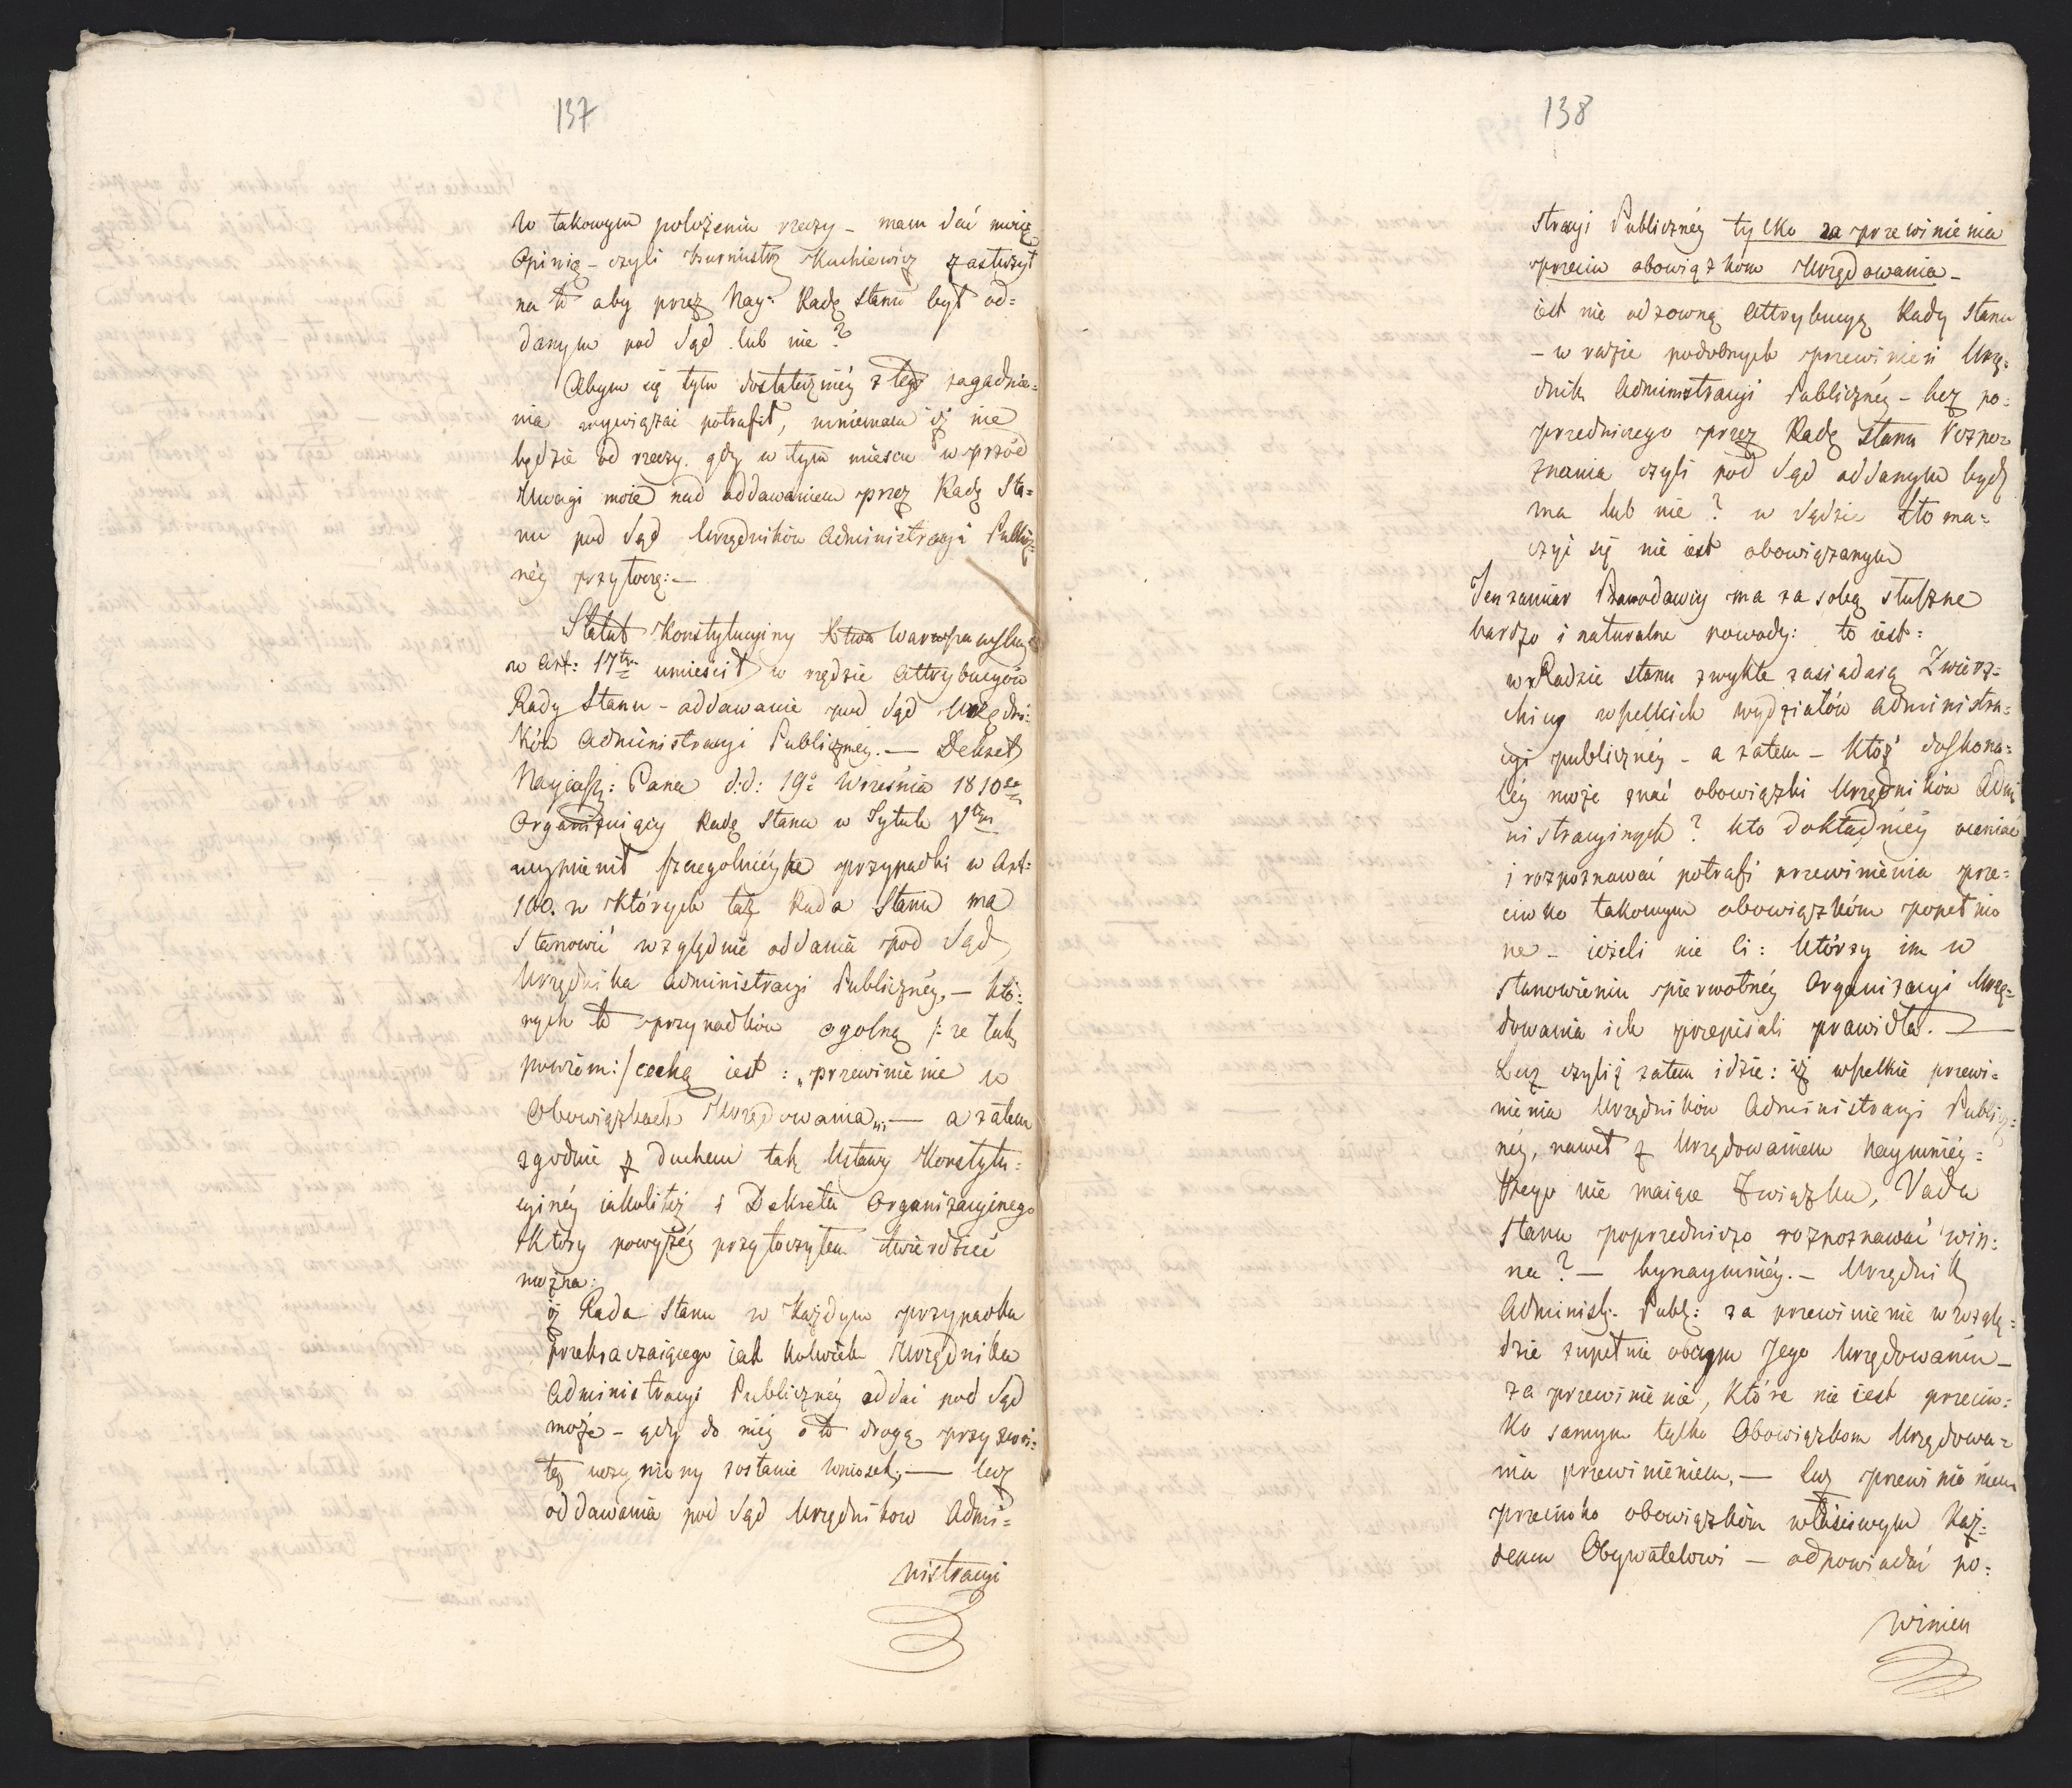 137
W takowym położeniu rzeczy – mam dać moię
Opinię – czyli Burmistrz Kuchiewicz zasłużył
na to aby przez Nay: Radę Stanu był od=
danym pod Sąd lub nie?
Abym się tym dostateczniéy z tego zagadnie=
nia wywiązać potrafił, mniemam iż nie
będzie od rzeczy gdy w tym mieścu w przód
Uwagi moie nad oddawaniem przez Radę Sta=
nu pod Sąd Urzędników Administracyi Publicz=
néy przytoczę: –
Statut Konstytucyiny Xtwa Warszawskiego
w Art: 17tym umieścił w rzędzie Attrybucyów
Rady Stanu – oddawanie pod Sąd Urzędni=
ków Administracyi Publicznéy. – Dekret
Nayiaśn: Pana d:d: 19o Września 1810go
Organizuiący Radę Stanu w Tytule Vtym
wymienił szczególniéysze przypadki w Art:
100. w których taż Rada Stanu ma
Stanowić względnie oddania pod Sąd
Urzędnika Administracyi Publicznéy, – któ=
rych to przypadków ogolną /: że tak
powiem :/ cechą iest : „przewinienie w
Obowiązkach Urzędowania„ – a zatem
zgodnie z duchem tak Ustawy Konstytu=
cyinéy iakoliteż i Dekretu Organizacyinego
który powyżéy przytoczyłem twierdzić
można:
iż Rada Stanu w każdym przypadku
przekraczaiącego iak kolwiek Urzędnika
Administracyi Publicznéy oddać pod Sąd
może – gdy do niéy o to drogą przyzwoi=
tą uczyniony zostanie wniosek; – lecz
oddawania pod Sąd Urzędników Admi=
nistracyi
138
stracyi Publicznéy tylko za przewinienia
przeciw obowiązkom Urzędowania –
iest nie odzowną Attrybucyą Rady Stanu
– w razie podobnych przewinień Urzę=
dnik Administracyi Publicznéy – bez po=
przedniczego przez Radę Stanu rozpoz
znania czyli pod Sąd oddanym bydź
ma lub nie? w Sądzie tłoma=
czyć się nie iest obowiązanym
Ten zamiar Prawodawcy ma za sobą słuszne
bardzo i naturalne powody: to iest:
w Radzie Stanu zwykle zasiadaią Zwierz=
chnicy wszelkich wydziałów Administra=
cyi publicznéy – a zatem – któż doskona=
léy może znać obowiązki Urzędników Admi
nistracyinych? kto dokładniéy oceniać
i rozpoznawać potrafi przewinienia prze=
ciwko takowym obowiązkóm popełnio
ne – ieżeli nie ci: którzy im w
stanowieniu pierwotnéy Organizacyi Urzę=
dowania ich przepisali prawidła. –
Lecz czyliż zatem idzie: iż wszelkie przewi=
nienia Urzędników Administracyi Publicz=
néy, nawet z Urzędowaniem naymniéy=
szego nie maiące Związku, Rada
Stanu poprzedniczo rozpoznawać win=
na? – bynaymniéy. – Urzędnik
Administ: Publ: za przewinienie w wzglę=
dzie zupełnie obcym Jego Urzędowaniu –
za przewinienie, które nie iest przeciw=
ko samym tylko Obowiązkom Urzędowa=
nia przewinieniem, – lecz przewinieniem
przeciwko obowiązkóm właściwym każ=
demu Obywatelowi – odpowiadać po=
winien